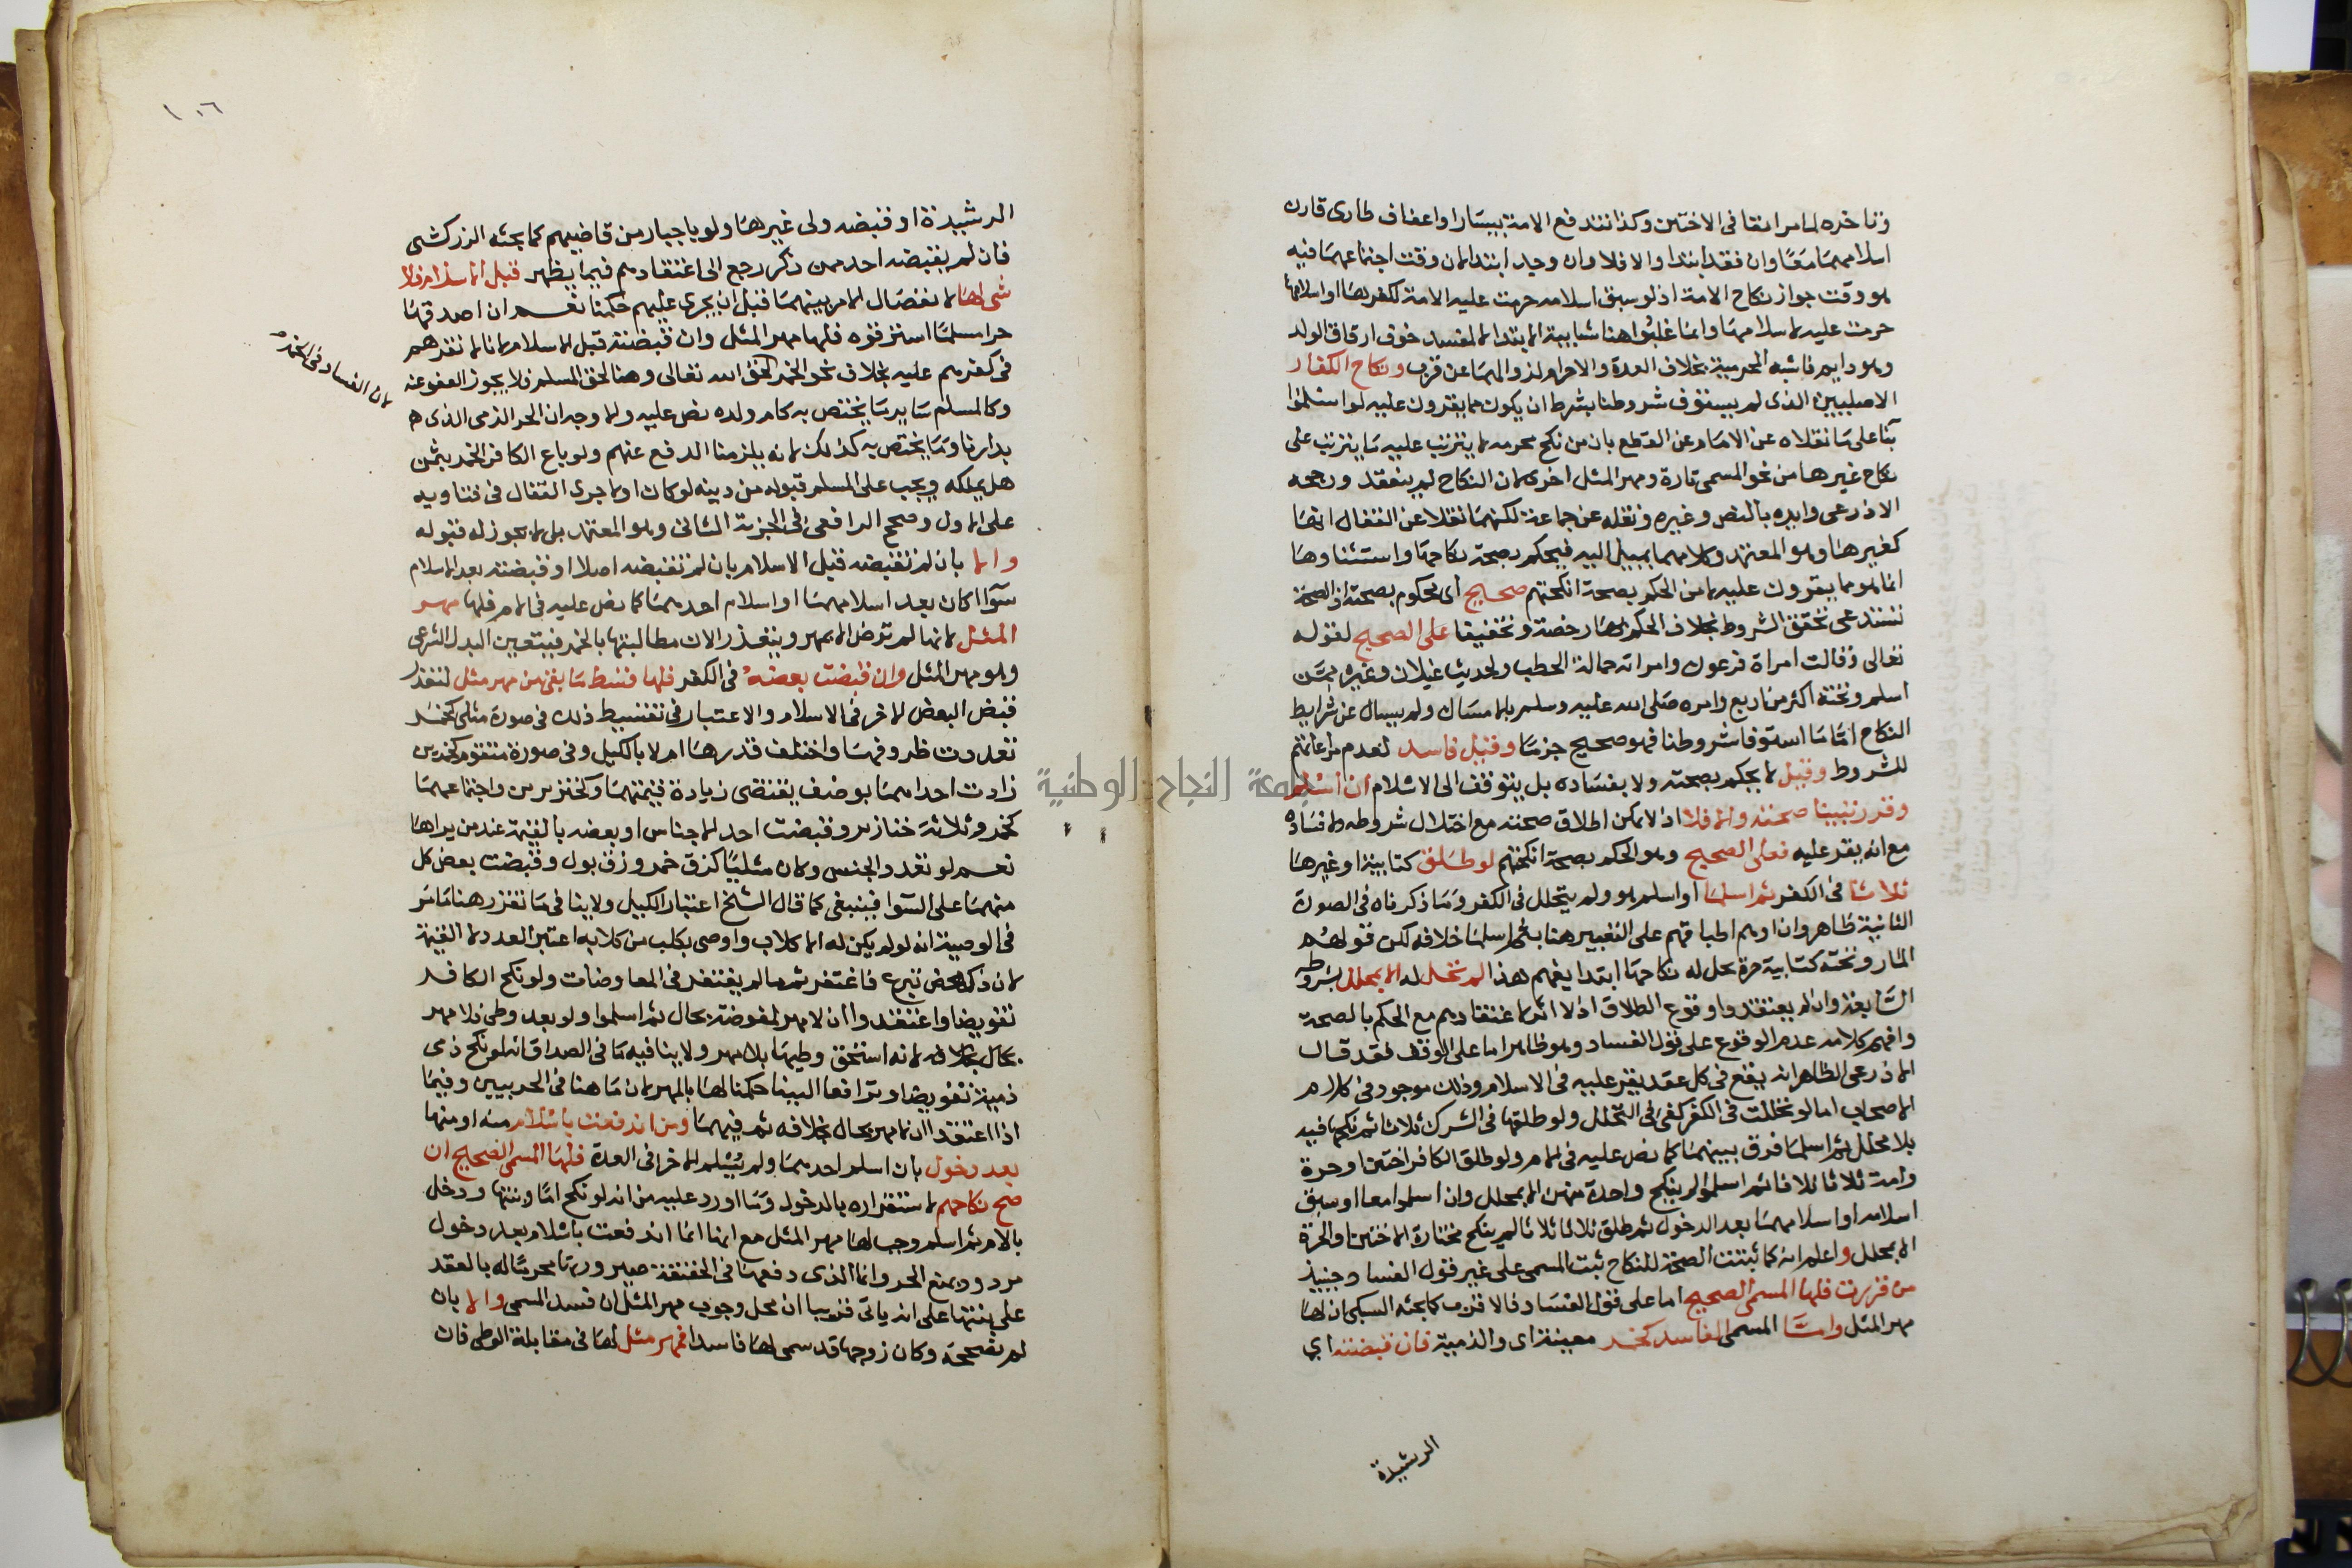 وتاخره لما مر انفا في الاختين وكذا تندفع الامة بيسار او اعفاف طارئ قارن
اسلامهما معا وان فقد ابتداء والا فلا وان وجد ابتدا لان وقت اجتماعهما فيه
هو وقت جواز نكاح الامة اذ لو سبق اسلامه حرمت عليه الامة لكفرها او اسلامها
حرمت عليه لاسلامها وانما غلبوا هنا شايبة الابتدا لان المفسد خوف ارقاق الولد
وهو دايم فاشبه المحرمية بخلاف العدة والاحرام لزوالهما عن قرب ونكاح الكفار
الاصليين الذي لم يستوف شروطنا بشرط ان يكون مما يقرون عليه لو اسلموا
بنا على ما نقلاه عن الامام عن القطع بان من نكح محرمه لا يترتب عليه ما يترتب على
نكاح غيرها من نحو المسمى تارة ومهر المثل اخرى لان النكاح لم ينعقد ورجحه
الاذرعي وايده بالنص وغيره ونقله عن جماعة لكنهما نقلا عن القفال انها
كغيرها وهو المعتمد وكلامهما يميل اليه فيحكم بصحة نكاحها واستثناوها
انما هو مما يقرون عليه لا من الحكم بصحة انكحتهم صحيح اي محكوم بصحته اذ الصحة
تستدعي تحقق الشروط بخلاف الحكم بها رخصة وتخفيفا على الصحيح لقوله
تعالى وقالت امراة فرعون وامراته حمالة الحطب ولحديث غيلان وغيره ممن
اسلم وتحته اكثر من اربع وامره صلى الله عليه وسلم بالامساك ولم يسال عن شرايط
النكاح اما ما استوفا شروطنا فهو صحيح جزما وقيل فاسد لعدم مراعاتهم
للشروط وقيل لا يحكم بصحته ولا بفساده بل يتوقف الى الاسلام ان اسلم
وقرر تبينا صحته والا فلا اذ لا يمكن اطلاق صحته مع اختلال شروطه ولا فساده
مع انه يقر عليه فعلى الصحيح وهو الحكم بصحة انكحتهم لو طلق كتابية او غيرها
ثلاثا في الكفر ثم اسلما او اسلم هو ولم يتحلل في الكفر وما ذكرناه في الصورة
الثانية ظاهر وان اوهم اطباقهم على التعبير هنا بثم اسلما خلافه لكن قولهم
المار وتحته كتابية حرة يحل له نكاحها ابتدا يفهم هذا لم تحل له الا بمحلل بشروطه
السابقة وان لم يعتقدوا وقوع الطلاق اذ لا اثر لاعتقادهم مع الحكم بالصحة
وافهم كلامه عدم الوقوع على قول الفساد وهو ظاهر اما على الوقف فقد قال
الاذرعي الظاهر انه يقع في كل عقد يقر عليه في الاسلام وذلك موجود في كلام
الاصحاب اما لو تحللت في الكفر كفى في التحلل ولو طلقها في الشرك ثلاثا ثم نكحها فيه
بلا محلل ثم اسلما فرق بينهما كما نص عليه في الام ولو طلق الكافر اختين او حرة
وامة ثلاثا ثلاثا ثم اسلموا لم ينكح واحدة منهن الا بمحلل وان اسلموا معا او سبق
اسلامه او اسلامهما بعد الدخول ثم طلق ثلاثا ثلاثا لم ينكح مختارة الاختين او الحرة
الا بمحلل واعلم انه كما ثبتت الصحة للنكاح ثبت المسمى على غير قول الفساد وحينيذ
من قررت فلها المسمى الصحيح اما على قول الفساد فالاقرب كما بحثه السبكي ان لها
مهر المثل واما المسمى الفاسد كخمر معينة اي والذمية فان قبضته اي
الرشيدة
١٠٦
الرشيدة او قبضه ولي غيرها ولو باجبار من قاضيهم كما بحثه الزركشي
فان لم يقبضه احد ممن ذكر رجع الى اعتقادهم فيما يظهر قبل الاسلام فلا
شي لها لانفصال الامر بينهما قبل ان يجري عليهم حكمنا نعم ان اصدقها
حرا مسلما استرقوه فلها مهر المثل وان قبضته قبل الاسلام لانا لا نقرهم
في كفرهم عليه بخلاف نحو الخمر لحق الله تعالى وهنا لحق المسلم فلا يجوز العفو عنه
لان الفساد في الخمر
وكالمسلم سايرما يختص به كام ولده نص عليه ولا وجه ان الحر الذمي الذي
بدارنا وما يختص به كذلك لانه يلزمنا الدفع عنهم ولو باع الكافر الخمر بثمن
هل يملكه ويجب على المسلم قبوله من دينه لو كان او لا جرى القفال في فتاويه
على الاول وصحح الرافعي في الجزية الثاني وهو المعتمد بل لا يجوز له قبوله
والا بان لم تقبضه قبل الاسلام بان لم تقبضه اصلا او قبضته بعد الاسلام
سوا اكان بعد اسلامهما او اسلام احدهما كما نص عليه في الام فلها مهر
المثل لانها لم ترض الا بمهر ويتعذر الان مطالبتها بالخمر فيتعين البدل الشرعي
وهو مهر المثل وان قبضت بعضه في الكفر فلها قسط ما بقي من مهر مثل لتعذر
قبض البعض الاخر في الاسلام والاعتبار في تقسيط ذلك في صورة مثلي كخمر
تعددت ظروفها واختلف قدرها ام لا بالكيل وفي صورة متقوم كخمرين
زادت احداهما بوصف يقتضي زيادة قيمتهما وكخنزيرين واجتماعهما
كخمر وثلاثة خنازير وقبضت احد الاجناس او بعضه بالقيمة عند من يراها
نعم لو تعدد الجنس وكان مثليا كزق خمر وزق بول وقبضت بعض كل
منهما على السوا فينبغي كما قال الشيخ اعتبار الكيل ولا ينافي ما تقرر هنا ما مر
في الوصية انه لو لم يكن له الا كلاب واوصى بكلب من كلابه اعتبر العدد لا القيمة
لان ذلك محض تبرع فاغتفر ثم ما لم يغتفر في المعاوضات ولو نكح الكافر
تفويضا واعتقدوا ان لا مهر لمفوضة بحال ثم اسلموا ولو بعد وطئ فلا مهر
بحال بخلافه لانه استحق وطيها بلا مهر ولا ينافيه ما في الصداق انه لو نكح ذمي
ذمية تفويضا وترافعا الينا حكمنا لها بالمهر لان ما هنا في الحربيين وفيما
اذا اعتقدا ان لا مهر بحال بخلافه ثم فيهما ومن اندفعت باسلام منه او منها
بعد دخول بان اسلم احدهما ولم يسلم الاخر في العدة فلها المسمى الصحيح ان
صح نكاحهم لاستقراره بالدخول وما اورد عليه من انه لو نكح اما وبنتها ودخل
بالام ثم اسلم وجب لها مهر المثل مع انها انما اندفعت باسلام بعد دخول
مردود بمنع الحر وانما الذي دفعها في الحقيقة صيرورتها محرما له بالعقد
على بنتها على انه ياتي قريبا ان محل وجوب مهر المثل ان فسد المسمى والا بان
لم نصححه وكان زوجها قد سمى لها فاسدا فمهر مثل لها في مقابلة الوطئ فان
جامعة النجاح الوطنية